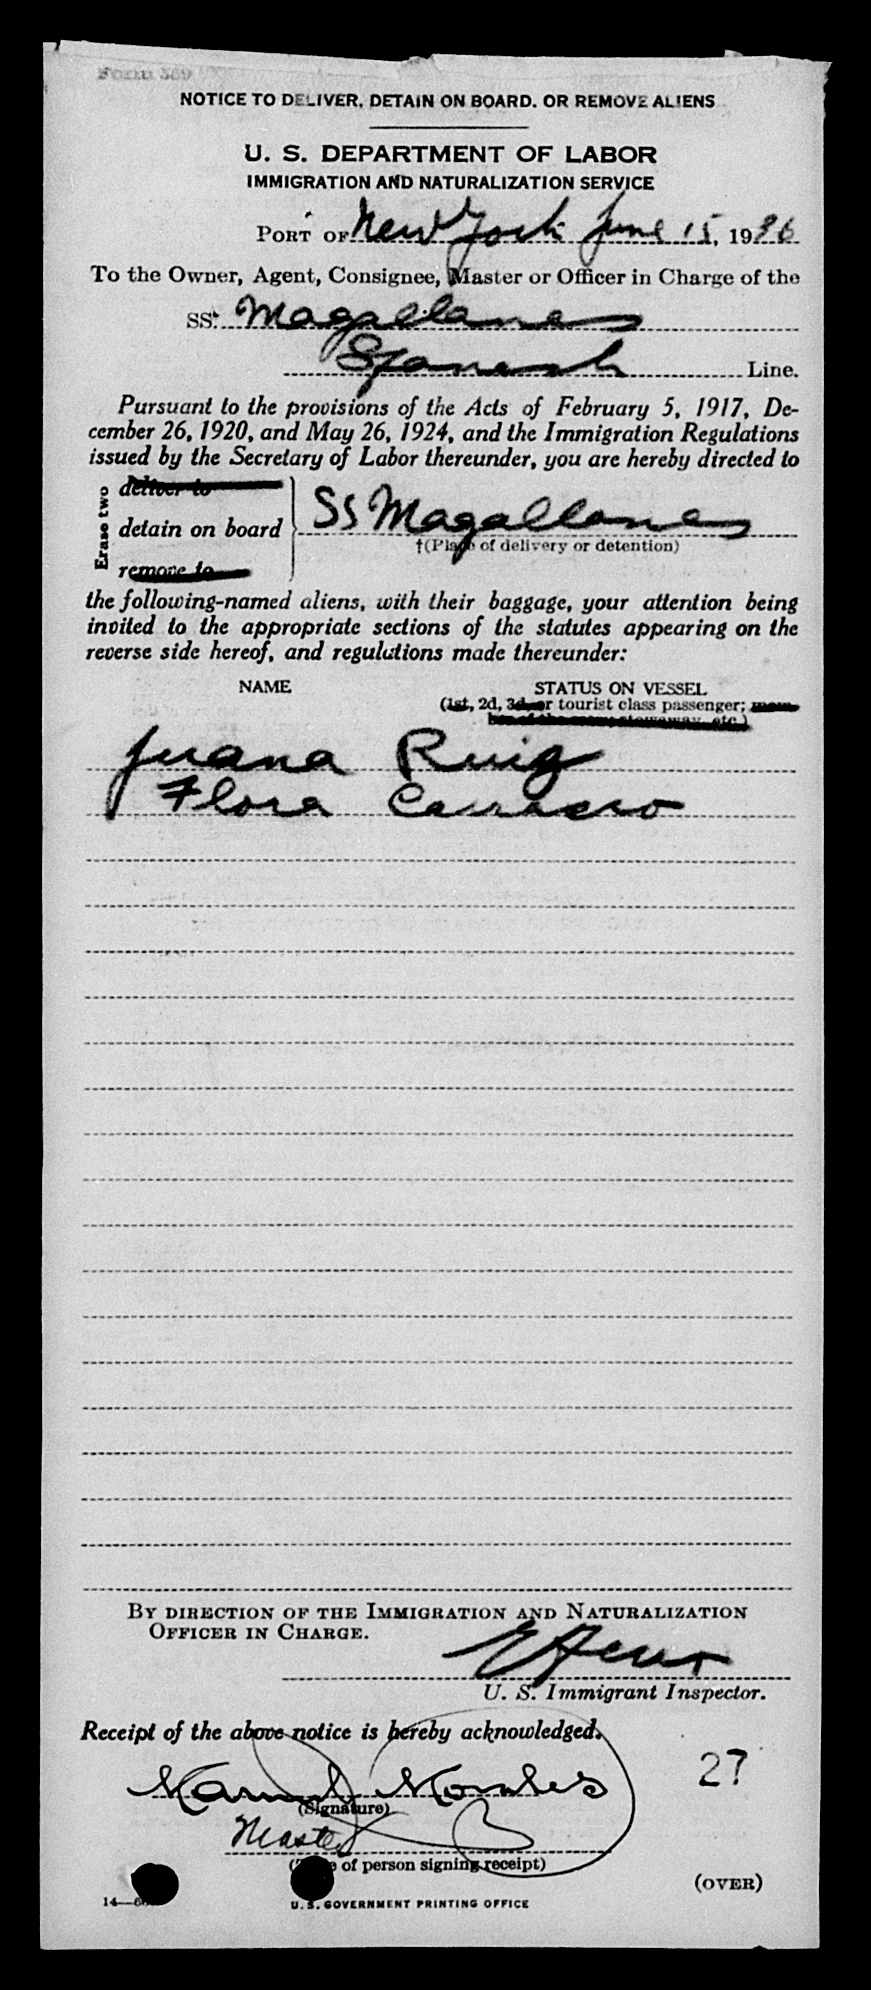 Form 359
NOTICE TO DELIVER, DETAIN ON BOARD, OR REMOVE ALIENS
U. S. DEPARTMENT OF LABOR
IMMIGRATION AND NATURALIZATION SERVICE
PORT OF New York June 15, 1936
To the Owner, Agent, Consignee, Master or Officer in Charge of the
SS. Magallanes
Spanish Line.
Pursuant to the provisions of the Acts of February 5, 1917, De-
cember 26, 1920, and May 26, 1924, and the Immigration Regulations
issued by the Secretary of Labor thereunder, you are hereby directed to
Erase two
deliver to
detain on board SS Magallanes
†(Place of delivery or detention)
remove to
the following-named aliens, with their baggage, your attention being
invited to the appropriate sections of the statutes appearing on the
reverse side hereof, and regulations made thereunder:
NAME STATUS ON VESSEL
(1st, 2d, 3d, or tourist class passenger; mem-
ber of the crew, stowaway, etc.)
Juana Ruiz
Flora
BY DIRECTION OF THE IMMIGRATION AND NATURALIZATION
OFFICER IN CHARGE.
U. S. Immigrant Inspector.
Receipt of the above notice is hereby acknowledged.
Manuel Morales
(Signature)
27
Master
(Title of person signing receipt)
(OVER)
14—
U. S. GOVERNMENT PRINTING OFFICE